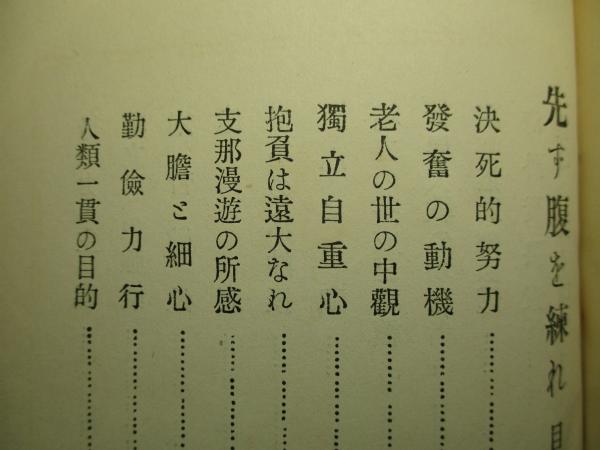 先ず腹を練れ 目
決死的努力………
發奮の動機………
老人の世の中觀………
獨立自重心………
抱負は遠大なれ………
支那漫遊の所感………
大膽と細心………
勤儉力行………
人類一貫の目的………